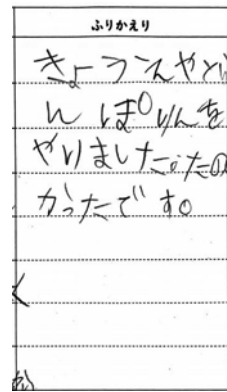 ふりかえり
きょうえやとら
んぽりんを
やりました。たの
かったです。
く